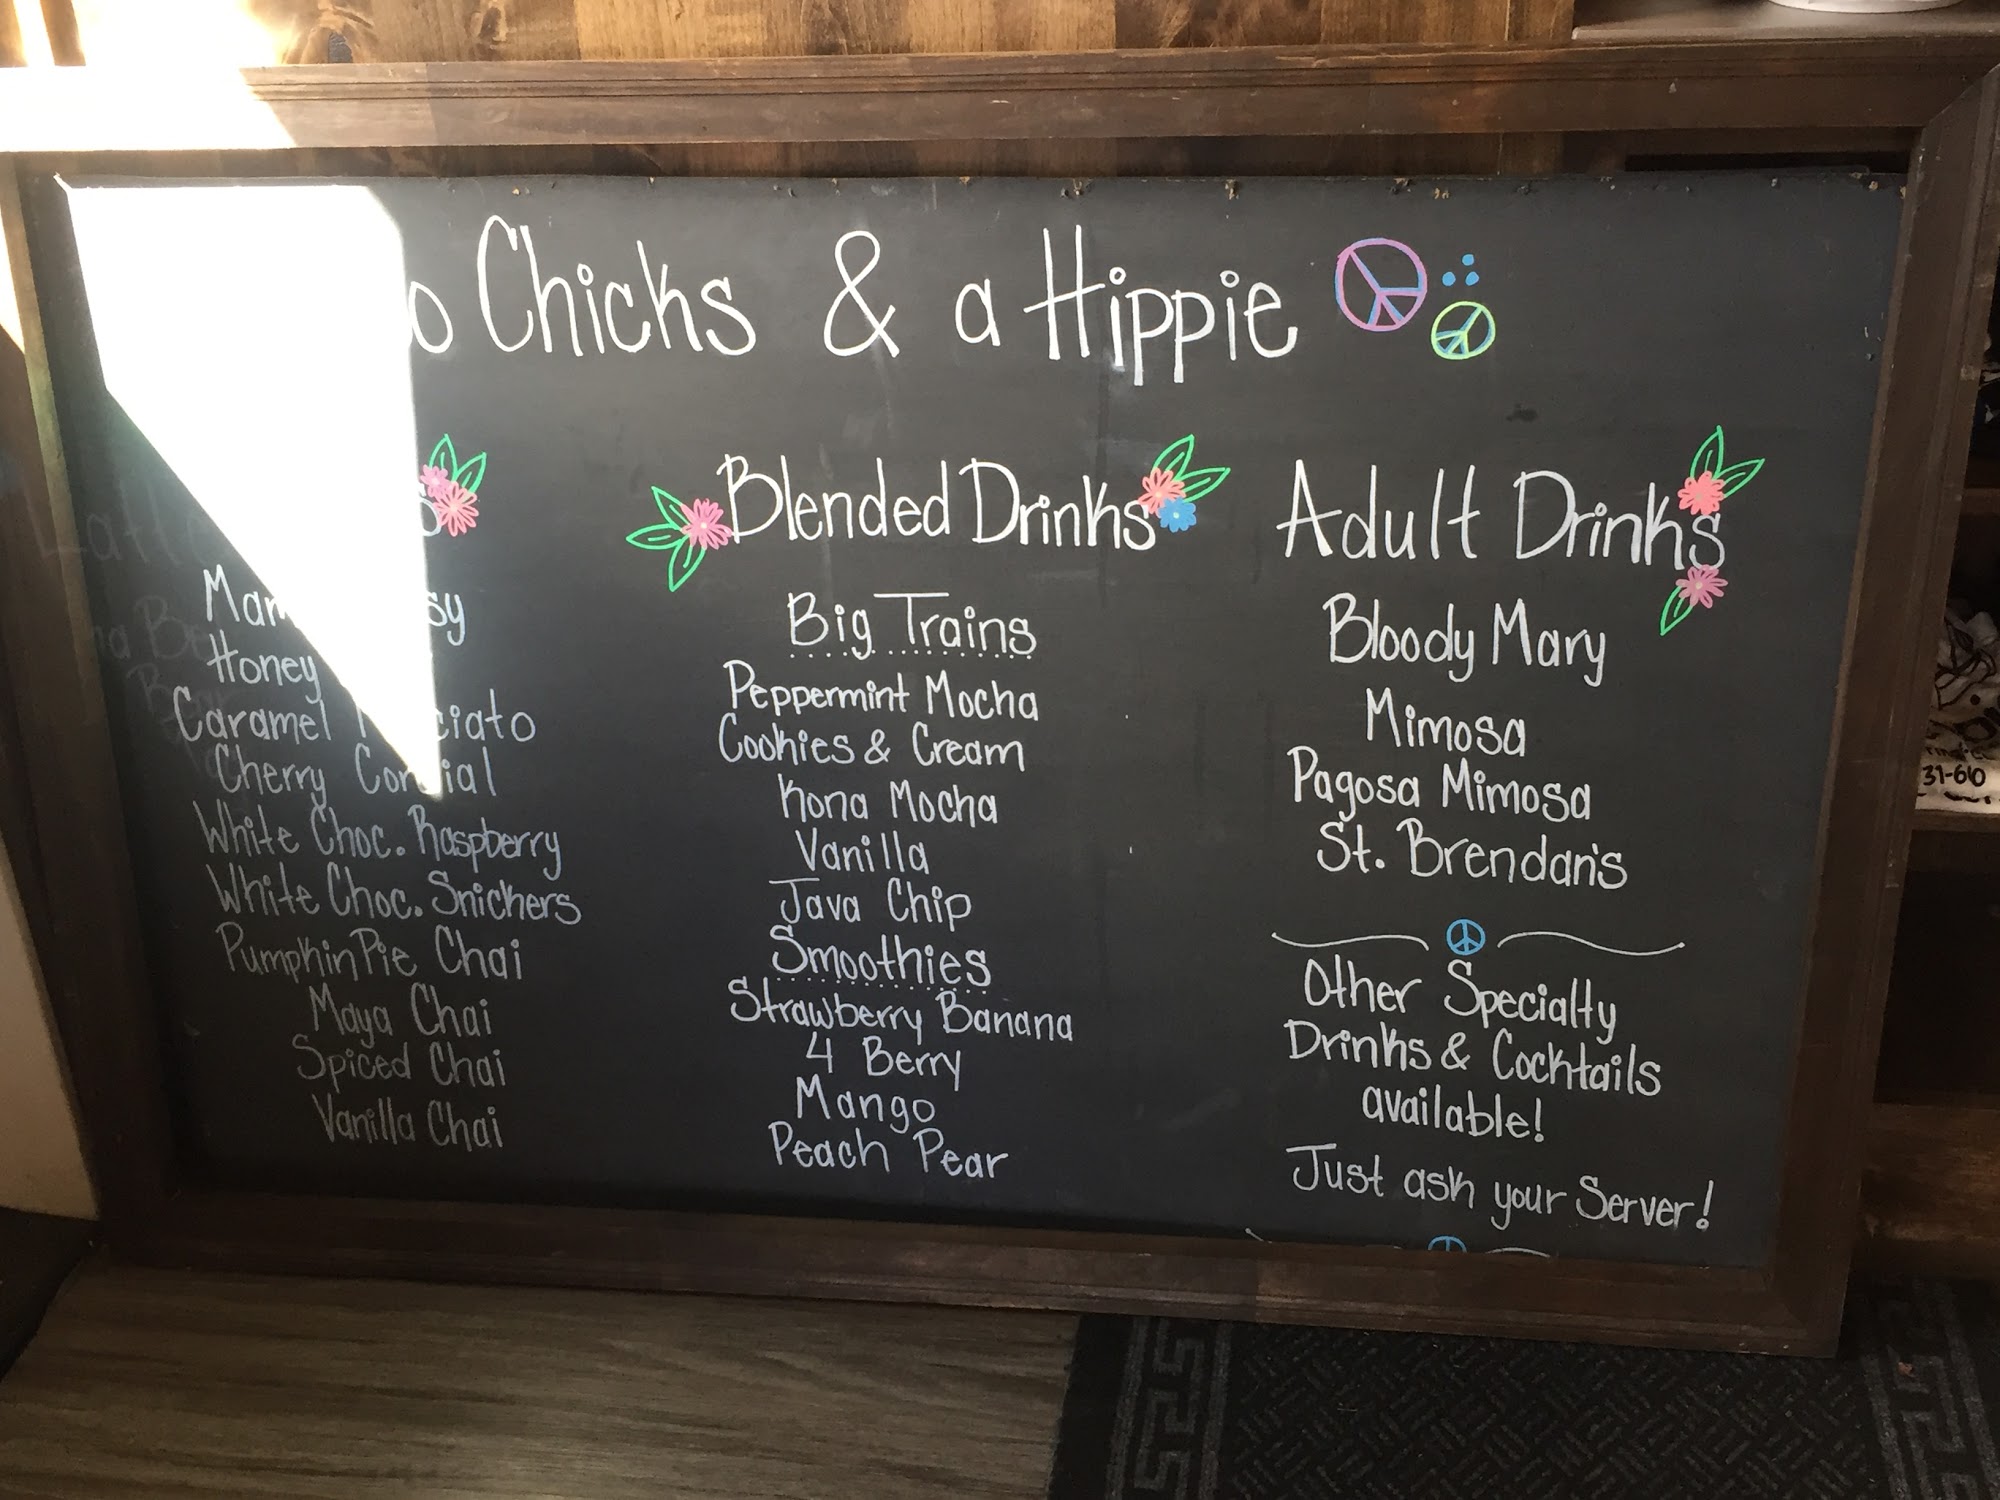 Chicks & a Hippie
Blended Drinks
Adult Drinks
Honey
Caramel
Cherry Cordial
White Choc. Raspberry
White Choc. Snickers
Pumpkin Pie Chai
Maya Chai
Spiced Chai
Vanilla Chai
Big Trains
Peppermint Mocha
Cookies & Cream
Kona Mocha
Vanilla
Java Chip
Smoothies
Strawberry Banana
4 Berry
Mango
Peach Pear
Bloody Mary
Mimosa
Pagosa Mimosa
St. Brendan's
Other Specialty
Drinks & Cocktails
available!
Just ask your Server!
31-60